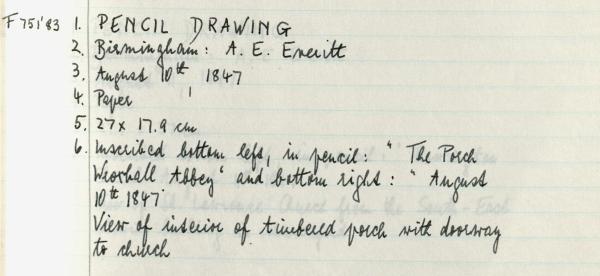 F 751'83 1. PENCIL DRAWING
2. Birmingham: A. E. Everitt
3. August 10th 1847
4. Paper
5. 27 x 17.9 cm
6. Inscribed bottom left, in pencil: " The Porch
Wroxhall Abbey" and bottom right: " August
10th 1847
View of interior of timbered porch with doorway
to church